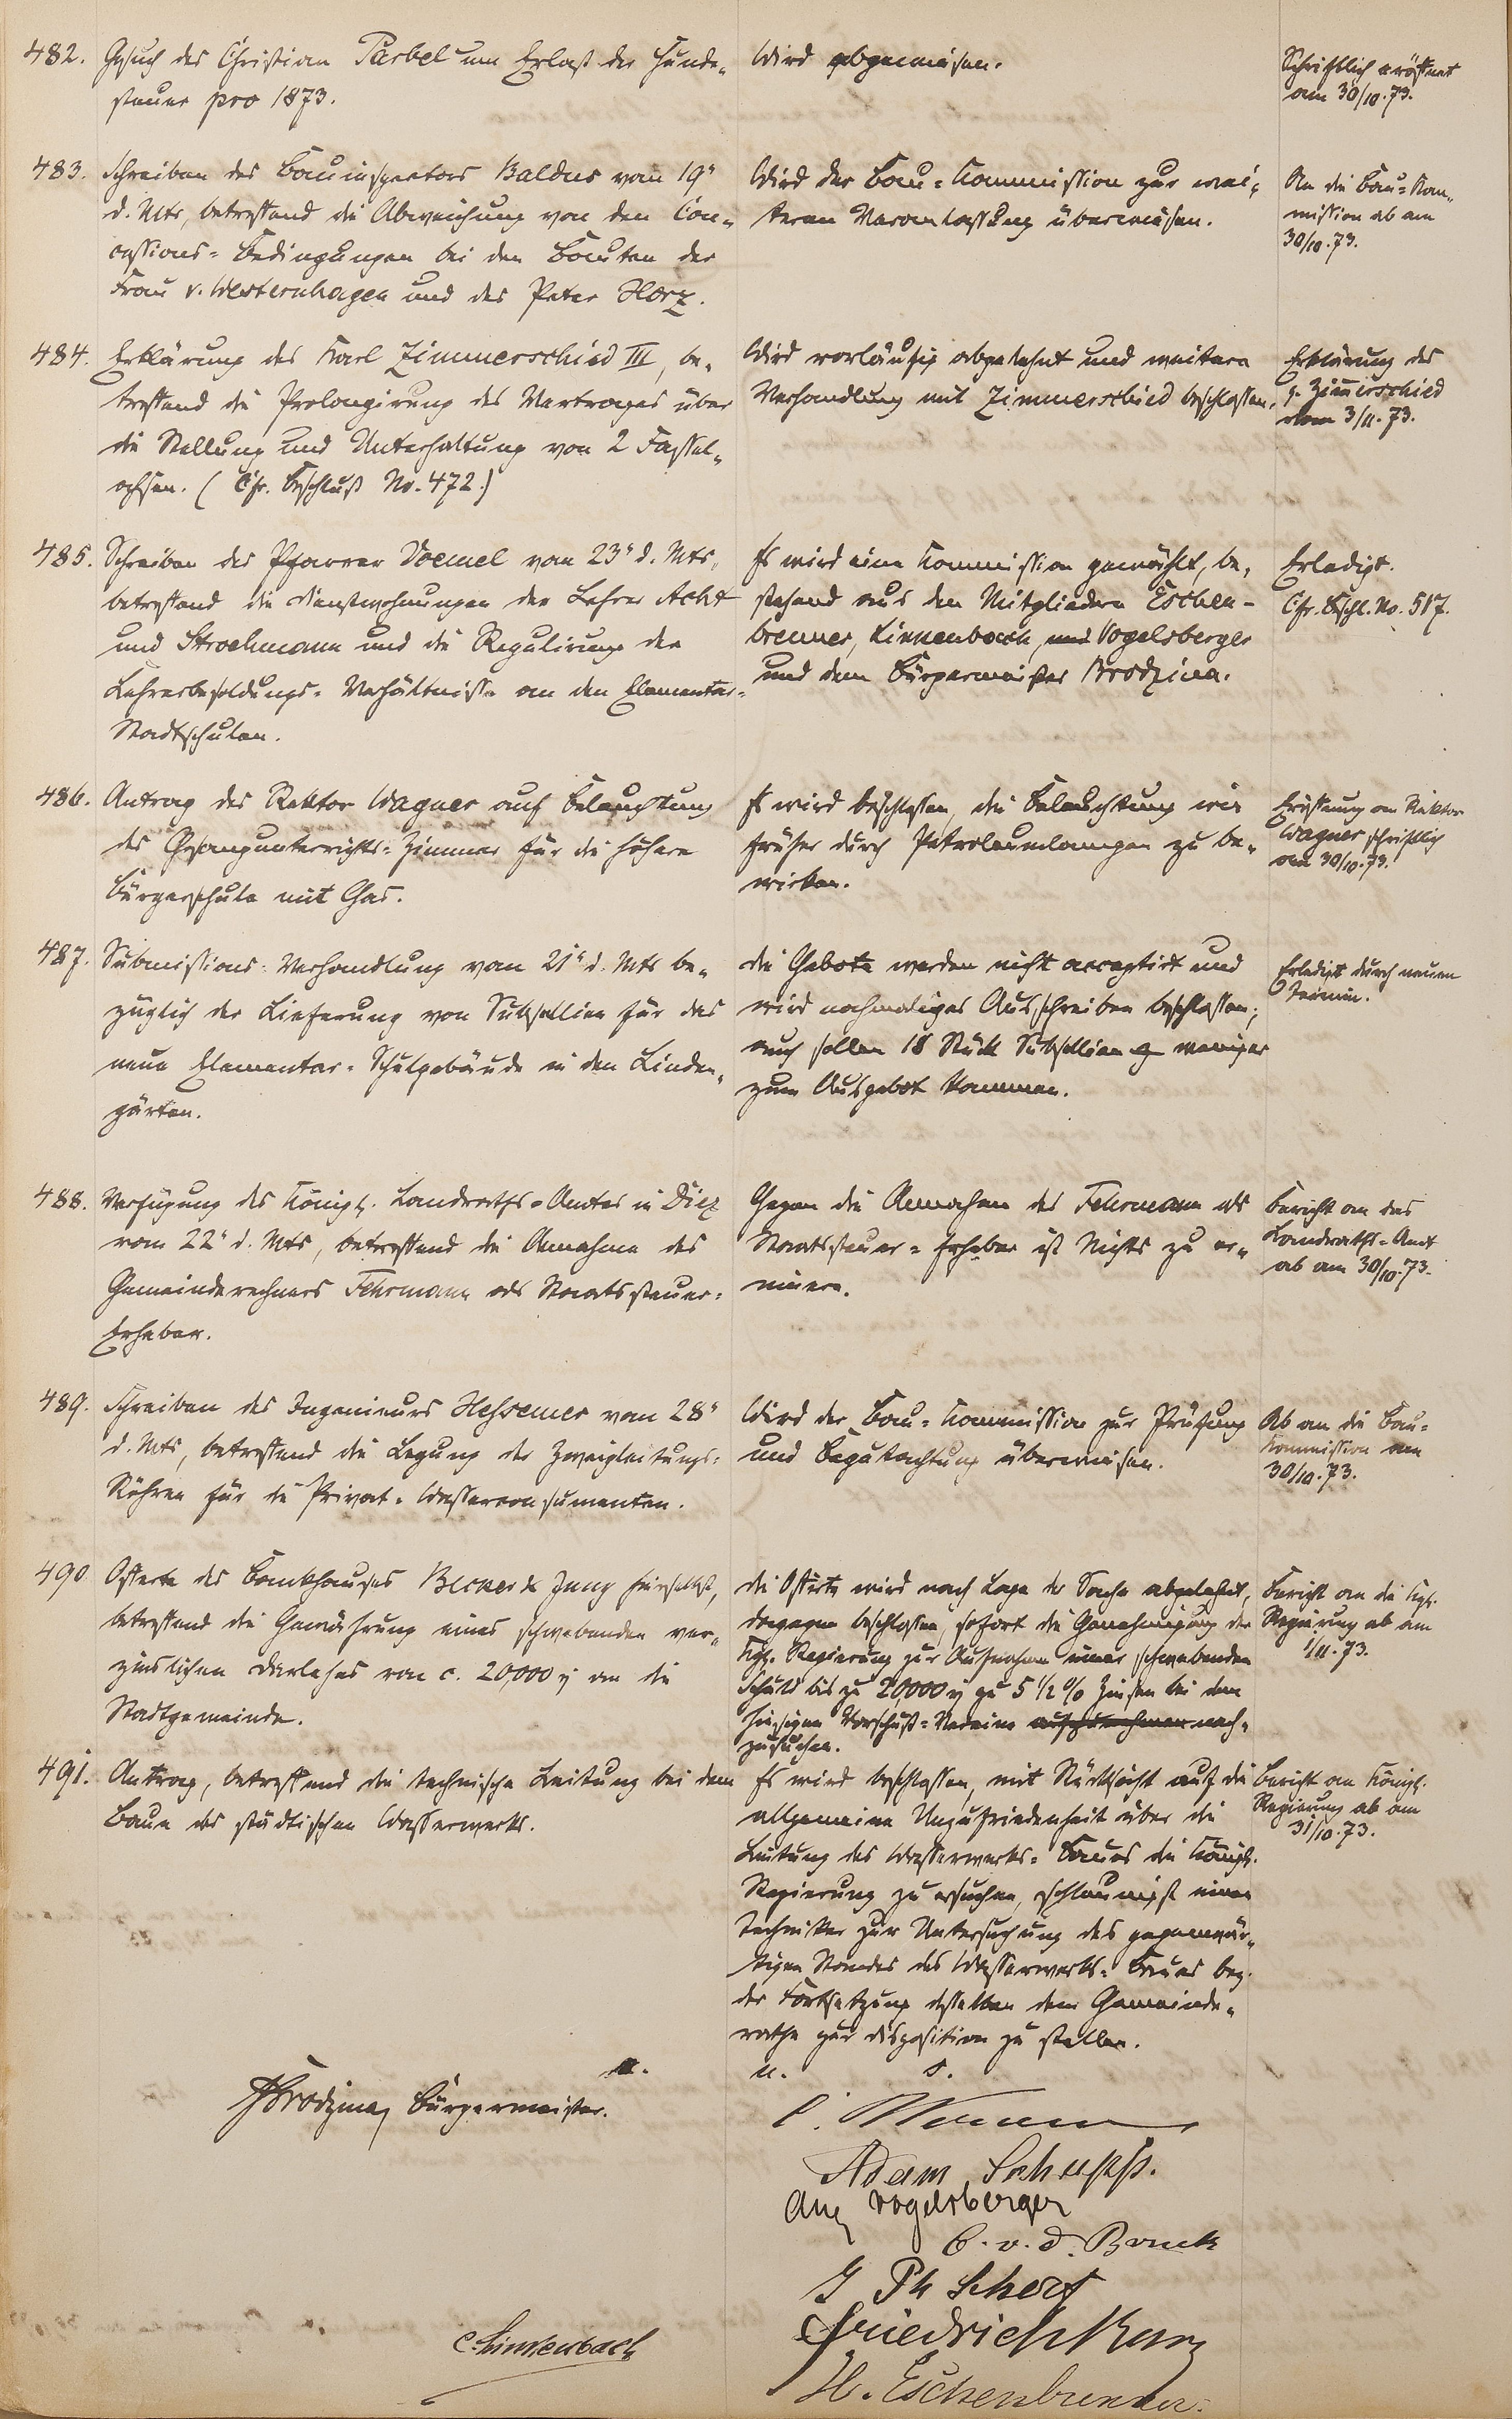 482. Gesuch des Christian Parbel um Erlaß der Hunde-
steuer pro 1873.
Wird abgewiesen.
Schriftlich eröffnet
am 30/10.73.
483. Schreiben des Bauinspectors Baldus vom 19"
d. Mts, betreffend die Abweichung von den Con-
cessions-Bedingungen bei den Bauten der
Frau v. Westernhagen und des Peter Horz.
Wird der Bau-Kommission zur wei-
teren Veranlassung überwiesen.
An die Bau-Kom-
mission ab am
30/10.73.
484. Erklärung des Karl Zimmerschied III, be-
treffend die Prolongirung des Vertrages über
die Stellung und Unterhaltung von 2 Fassel-
ochsen. (Cfr. Beschluß No. 472.)
Wird vorläufig abgelehnt und weitere
Verhandlung mit Zimmerschied beschlossen.
Erklärung des
p. Zimerschied
vom 3/11.73.
485. Schreiben des Pfarrer Doemel vom 23" d. Mts,
betreffend die Dienstwohnungen der Lehrer Acht
und Stroehmann und die Regulirung der
Lehrerbesoldungs-Verhältnisse an den Elementar-
Stadtschulen.
Es wird eine Kommission gewählt, be-
stehend aus den Mitgliedern Eschen-
brenner, Linnenbach, und Vogelsberger
und dem Bürgermeister Brodzina.
Erledigt.
Cfr. Beschl. No. 517.
486. Antrag des Rektor Wagner auf Beleuchtung
des Gesangunterrichts-Zimmer für die höhere
Bürgerschule mit Gas.
Es wird beschlossen, die Beleuchtung wie
früher durch Petroleumlampen zu be-
wirken.
Eröffnung an Rektor
Wagner schriftlich
am 30/10.73.
487. Submissions-Verhandlung vom 21" d. Mts be-
züglich der Lieferung von Subsellien für das
neue Elementar-Schulgebäude in den Linden-
gärten.
Die Gebote werden nicht acceptirt und
wird nochmaliges Ausschreiben beschlossen;
auch sollen 18 Stück Subsellien weniger
zum Ausgebot kommen.
Erledigt durch neuen
Termin.
488. Verfügung des Königl. Landraths-Amtes in Diez
vom 22" d. Mts, betreffend die Annahme des
Gemeinderechners Fehrmann als Staatssteuer-
Erheber.
Gegen die Annahme des Fehrmann als
Staatssteuer-Erheber ist Nichts zu er-
innern.
Bericht an das
Landraths-Amt
ab am 30/10.73.
489. Schreiben des Ingenieurs Hessemer vom 28"
d. Mts, betreffend die Legung der Zweigleitungs-
Röhren für die Privat-Wasserconsumenten.
Wird der Bau-Kommission zur Prüfung
und Begutachtung überwiesen.
Ab an die Bau-
kommission am
30/10.73.
490. Offerte des Bankhauses Becker & Jung hierselbst,
betreffend die Gewährung eines schwebenden ver-
zinslichen Darlehes von c. 20,000 an die
Stadtgemeinde.
Die Offerte wird nach Lage der Sache abgelehnt,
dagegen beschlossen, sofort die Genehmigung der
Kgl. Regierung zur Aufnahme einer schwebenden
Schuld bis zu 20,000 zu 5 1/2 % Zinsen bei dem
hiesigen Vorschuß-Vereine aufzunehmen nach-
zusuchen.
Bericht an die Kgl.
Regierung ab am
1/11.73.
491. Antrag, betreffend die technische Leitung bei dem
Baue des städtischen Wasserwerks.
Es wird beschlossen, mit Rücksicht auf die
allgemeine Unzufriedenheit über die
Leitung des Wasserwerks-Baues die Königl.
Regierung zu ersuchen, schleunigst einen
Techniker zur Untersuchung des gegenwär-
tigen Standes des Wasserwerks-Baues bez.
der Fortsetzung desselben dem Gemeinde-
rathe zur Disposition zu stellen.
Bericht an Königl.
Regierung ab am
31/10.73.
a. u. s.
Brodzina, Bürgermeister.
Adam Schupp.
Aug Vogelsberger
C. v. d. Bruck
J Ph Schert
Friedrich Kurz
C Linnenbach
H. Eschenbrenner.